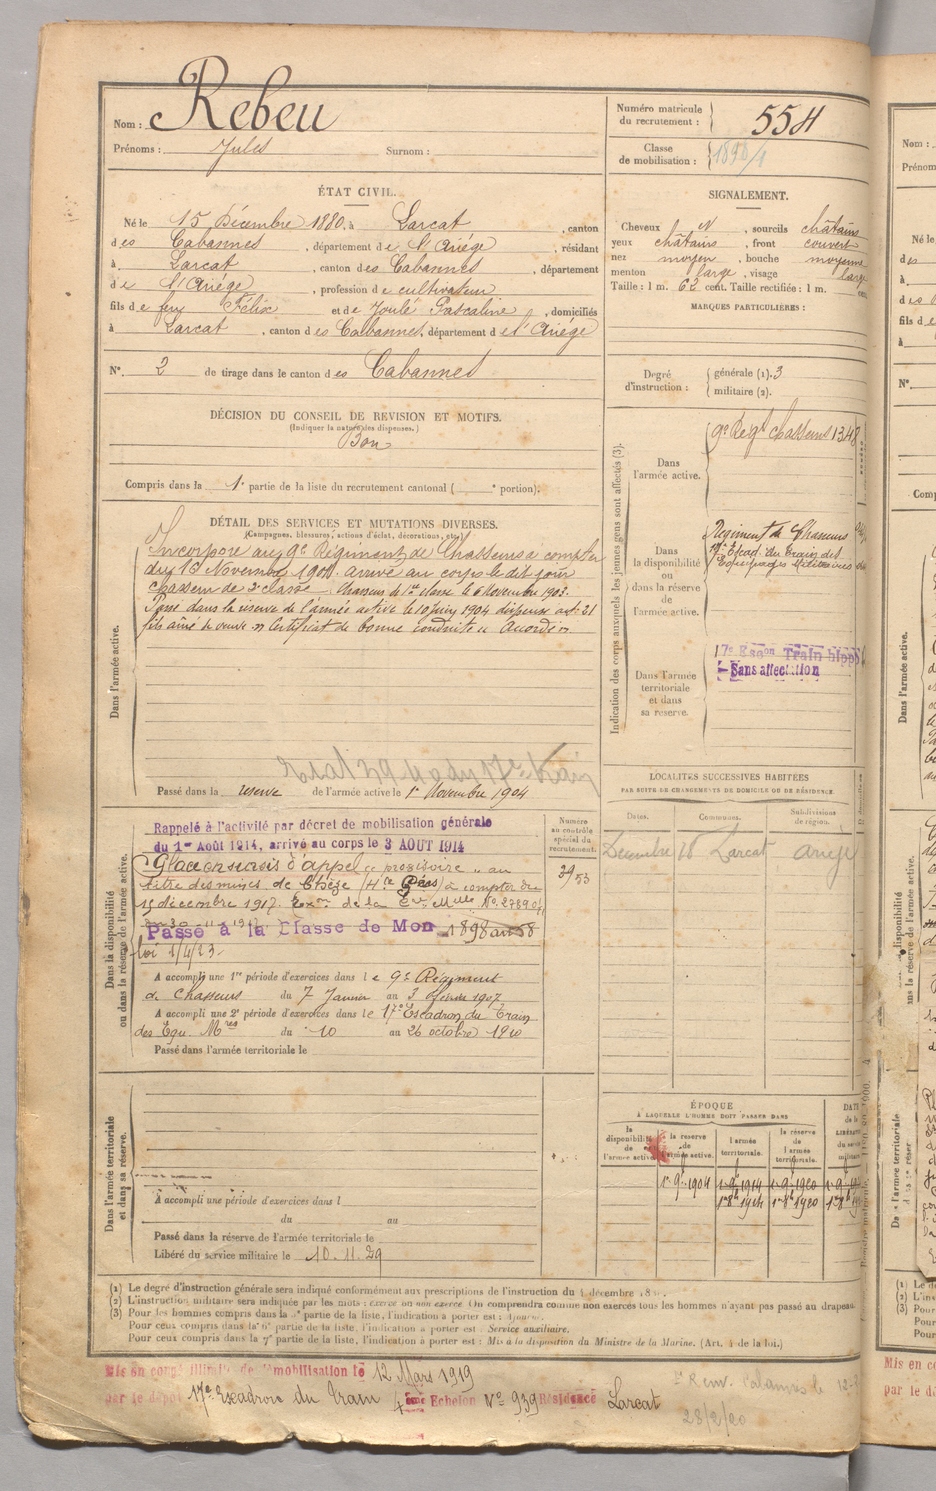 Nom : Rebeu
Prénoms : Jules Surnom :
Numéro matricule du recrutement : 554
Classe de mobilisation : 1898/4
ÉTAT CIVIL.
Né le 15 Décembre 1880, à Larcat, canton
des Cabannes, département de l'Ariége, résidant
à Larcat, canton des Cabannes, département
de l'Ariége, profession de cultivateur
fils de feu Félix et de Joulé Pascaline, domiciliés
à Larcat, canton des Cabannes, département de l'Ariége
N°. 2 de tirage dans le canton des Cabannes
SIGNALEMENT.
Cheveux N, sourcils châtains
yeux châtains, front couvert
nez moyen, bouche moyenne
menton large, visage large
Taille : 1 m. 62 cent. Taille rectifiée : 1 m. cent.
MARQUES PARTICULIÈRES :
Degré d'instruction : générale (1). 3
militaire (2).
DÉCISION DU CONSEIL DE REVISION ET MOTIFS.
(Indiquer la nature des dispenses.)
Bon
Compris dans la 1e partie de la liste du recrutement cantonal ( e portion).
DÉTAIL DES SERVICES ET MUTATIONS DIVERSES.
(Campagnes, blessures, actions d'éclat, décorations, etc.)
Dans l'armée active.
Incorporé au 9e Régiment de Chasseurs à compter
du 16 Novembre 1901. arrivé au corps le dit jour
chasseur de 2e classe. Chasseur de 1re classe le 6 Novembre 1903.
Passé dans la réserve de l'armée active le 10 juin 1904 dispensé art. 21
fils aîné de veuve. Certificat de bonne conduite Accordé
Passé dans la réserve de l'armée active le 1er Novembre 1904
Indication des corps auxquels les jeunes gens sont affectés (3).
Dans l'armée active.
9e Régt Chasseurs 1348
Dans la disponibilité ou dans la réserve de l'armée active.
Régiment de Chasseurs
17e Escad. du Train des
Equipages Militaires
Dans l'armée territoriale et dans sa réserve.
Sans affectation
LOCALITÉS SUCCESSIVES HABITÉES
PAR SUITE DE CHANGEMENTS DE DOMICILE OU DE RÉSIDENCE
Dates. Communes. Subdivisions de région.
Décembre 18 Larcat Ariége
Dans la disponibilité ou dans la réserve de l'armée active.
Numéro au contrôle spécial du recrutement.
3953
Rappelé à l'activité par décret de mobilisation générale
du 1er Août 1914, arrivé au corps le 3 AOUT 1914
Placé en sursis d'appel provisoire au
titre des mines de Chèze (Hte Pées) à compter du
15 décembre 1917.
Passé à la Classe de Mon 1898
loi 1/4/23
A accompli une 1re période d'exercices dans le 9e Régiment
de Chasseurs du 7 Janvier au 3 février 1907
A accompli une 2e période d'exercices dans le 17e Escadron du Train
des Equ. Mres du 10 au 26 octobre 1910
Passé dans l'armée territoriale le
ÉPOQUE
À LAQUELLE L'HOMME DOIT PASSER DANS
la disponibilité de l'armée active. la réserve de l'armée active. l'armée territoriale. la réserve de l'armée territoriale.
1er 9bre 1904 1er 9bre 1914 1er 9bre 1920
Dans l'armée territoriale et dans sa réserve.
A accompli une période d'exercices dans l
du au
Passé dans la réserve de l'armée territoriale le
Libéré du service militaire le 10.11.29
(1) Le degré d'instruction générale sera indiqué conformément aux prescriptions de l'instruction du 4 décembre
(2) L'instruction militaire sera indiquée par les mots : exercé ou non exercé. On comprendra comme non exercés tous les hommes n'ayant pas passé au drapeau.
(3) Pour les hommes compris dans la partie de la liste, l'indication à porter est : Ajourné.
Pour ceux compris dans la 6e partie de la liste, l'indication à porter est : Service auxiliaire.
Pour ceux compris dans la 7e partie de la liste, l'indication à porter est : Mis à la disposition du Ministre de la Marine. (Art. 4 de la loi.)
Mis en congé illimité de démobilisation le 12 Mars 1919
par le dépôt 17e Escadron du Train 4ème Echelon N° 939 Résidence Larcat
28/2/20